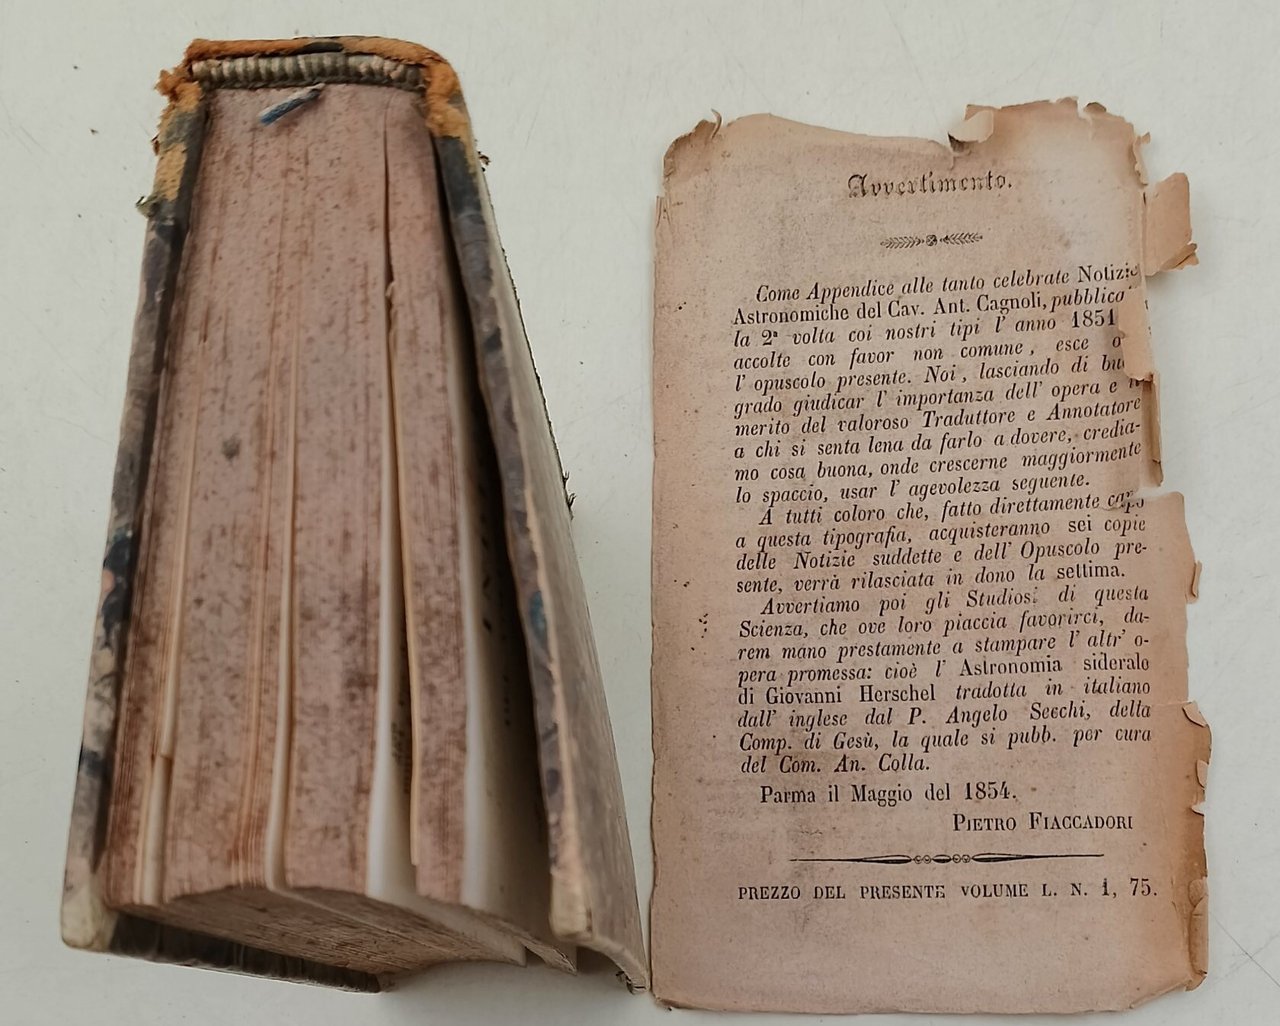 Avvertimento.
Come Appendice alle tanto celebrate Notizie
Astronomiche del Cav. Ant. Cagnoli, pubblica
la 2ª volta coi nostri tipi l' anno 1851
accolte con favor non comune, esce o
l' opuscolo presente. Noi, lasciando di bu
grado giudicar l' importanza dell' opera e
merito del valoroso Traduttore e Annotatore
a chi si senta lena da farlo a dovere, credia-
mo cosa buona, onde crescerne maggiormente
lo spaccio, usar l' agevolezza seguente.
A tutti coloro che, fatto direttamente capo
a questa tipografia, acquisteranno sei copie
delle Notizie suddette e dell' Opuscolo pre-
sente, verrà rilasciata in dono la settima.
Avvertiamo poi gli Studiosi di questa
Scienza, che ove loro piaccia favorirci, da-
rem mano prestamente a stampare l' altr' o-
pera promessa: cioè l' Astronomia siderale
di Giovanni Herschel tradotta in italiano
dall' inglese dal P. Angelo Secchi, della
Comp. di Gesù, la quale si pubb. per cura
del Com. An. Colla.
Parma il Maggio del 1854.
PIETRO FIACCADORI
PREZZO DEL PRESENTE VOLUME L. N. 1, 75.